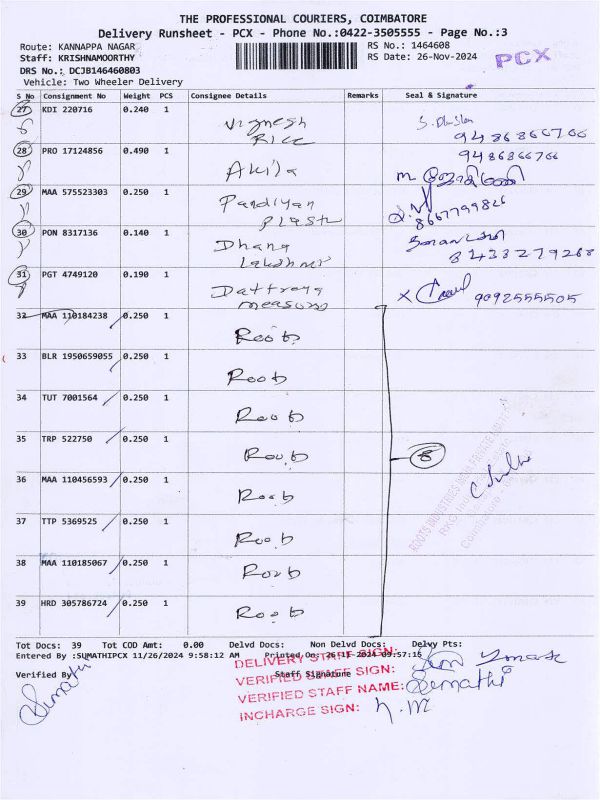 THE PROFESSIONAL COURIERS, COIMBATORE
Delivery Runsheet - PCX - Phone No.:0422-3505555 - Page No.:3
Route: KANNAPPA NAGAR
RS No.: 1464608
Staff: KRISHNAMOORTHY
RS Date: 26-Nov-2024
PCX
DRS No.: DCJB146460803
Vehicle: Two Wheeler Delivery
S No Consignment No Weight PCS Consignee Details Remarks Seal & Signature
27 KDI 220716 0.240 1 Vignesh
Rice
9486866766
28 PRO 17124856 0.490 1 Akila
9486866766
29 MAA 575523303 0.250 1 Pandiyan
8667799826
30 PON 8317136 0.140 1 Dhana
Lakshmi
8433279268
31 PGT 4749120 0.190 1
9092555505
32 MAA 110184238 0.250 1
33 BLR 1950659055 0.250 1 Roob
34 TUT 7001564 0.250 1 Roob
35 TRP 522750 0.250 1 Roob
8
36 MAA 110456593 0.250 1 Roob
37 TTP 5369525 0.250 1 Roob
38 MAA 110185067 0.250 1 Roob
39 HRD 305786724 0.250 1 Roob
Tot Docs: 39 Tot COD Amt: 0.00 Delvd Docs: Non Delvd Docs: Delvy Pts:
Entered By :SUMATHIPCX 11/26/2024 9:58:12 AM Printed On: 26-11-2024 09:57:16
DELIVERY STAFF SIGN:
Verified By Staff Signature
VERIFIED STAFF SIGN:
Sumathi
VERIFIED STAFF NAME: Sumathi
INCHARGE SIGN: